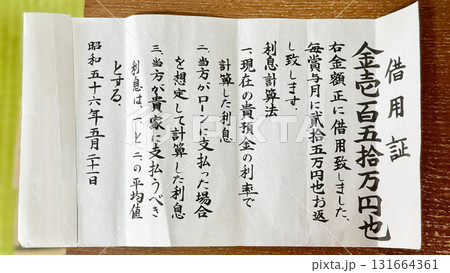 借用証
金壱百五拾万円也
右金額正に借用致しました、
毎賞与月に貮拾五万円也お返
し致します。
利息計算法
一、現在の貴預金の利率で
計算した利息
二、当方がローンに支払った場合
を想定して計算した利息
三、当方が貴家に支払うべき
利息は、一と二の平均値
とする、
昭和五十六年五月二十一日
131664361